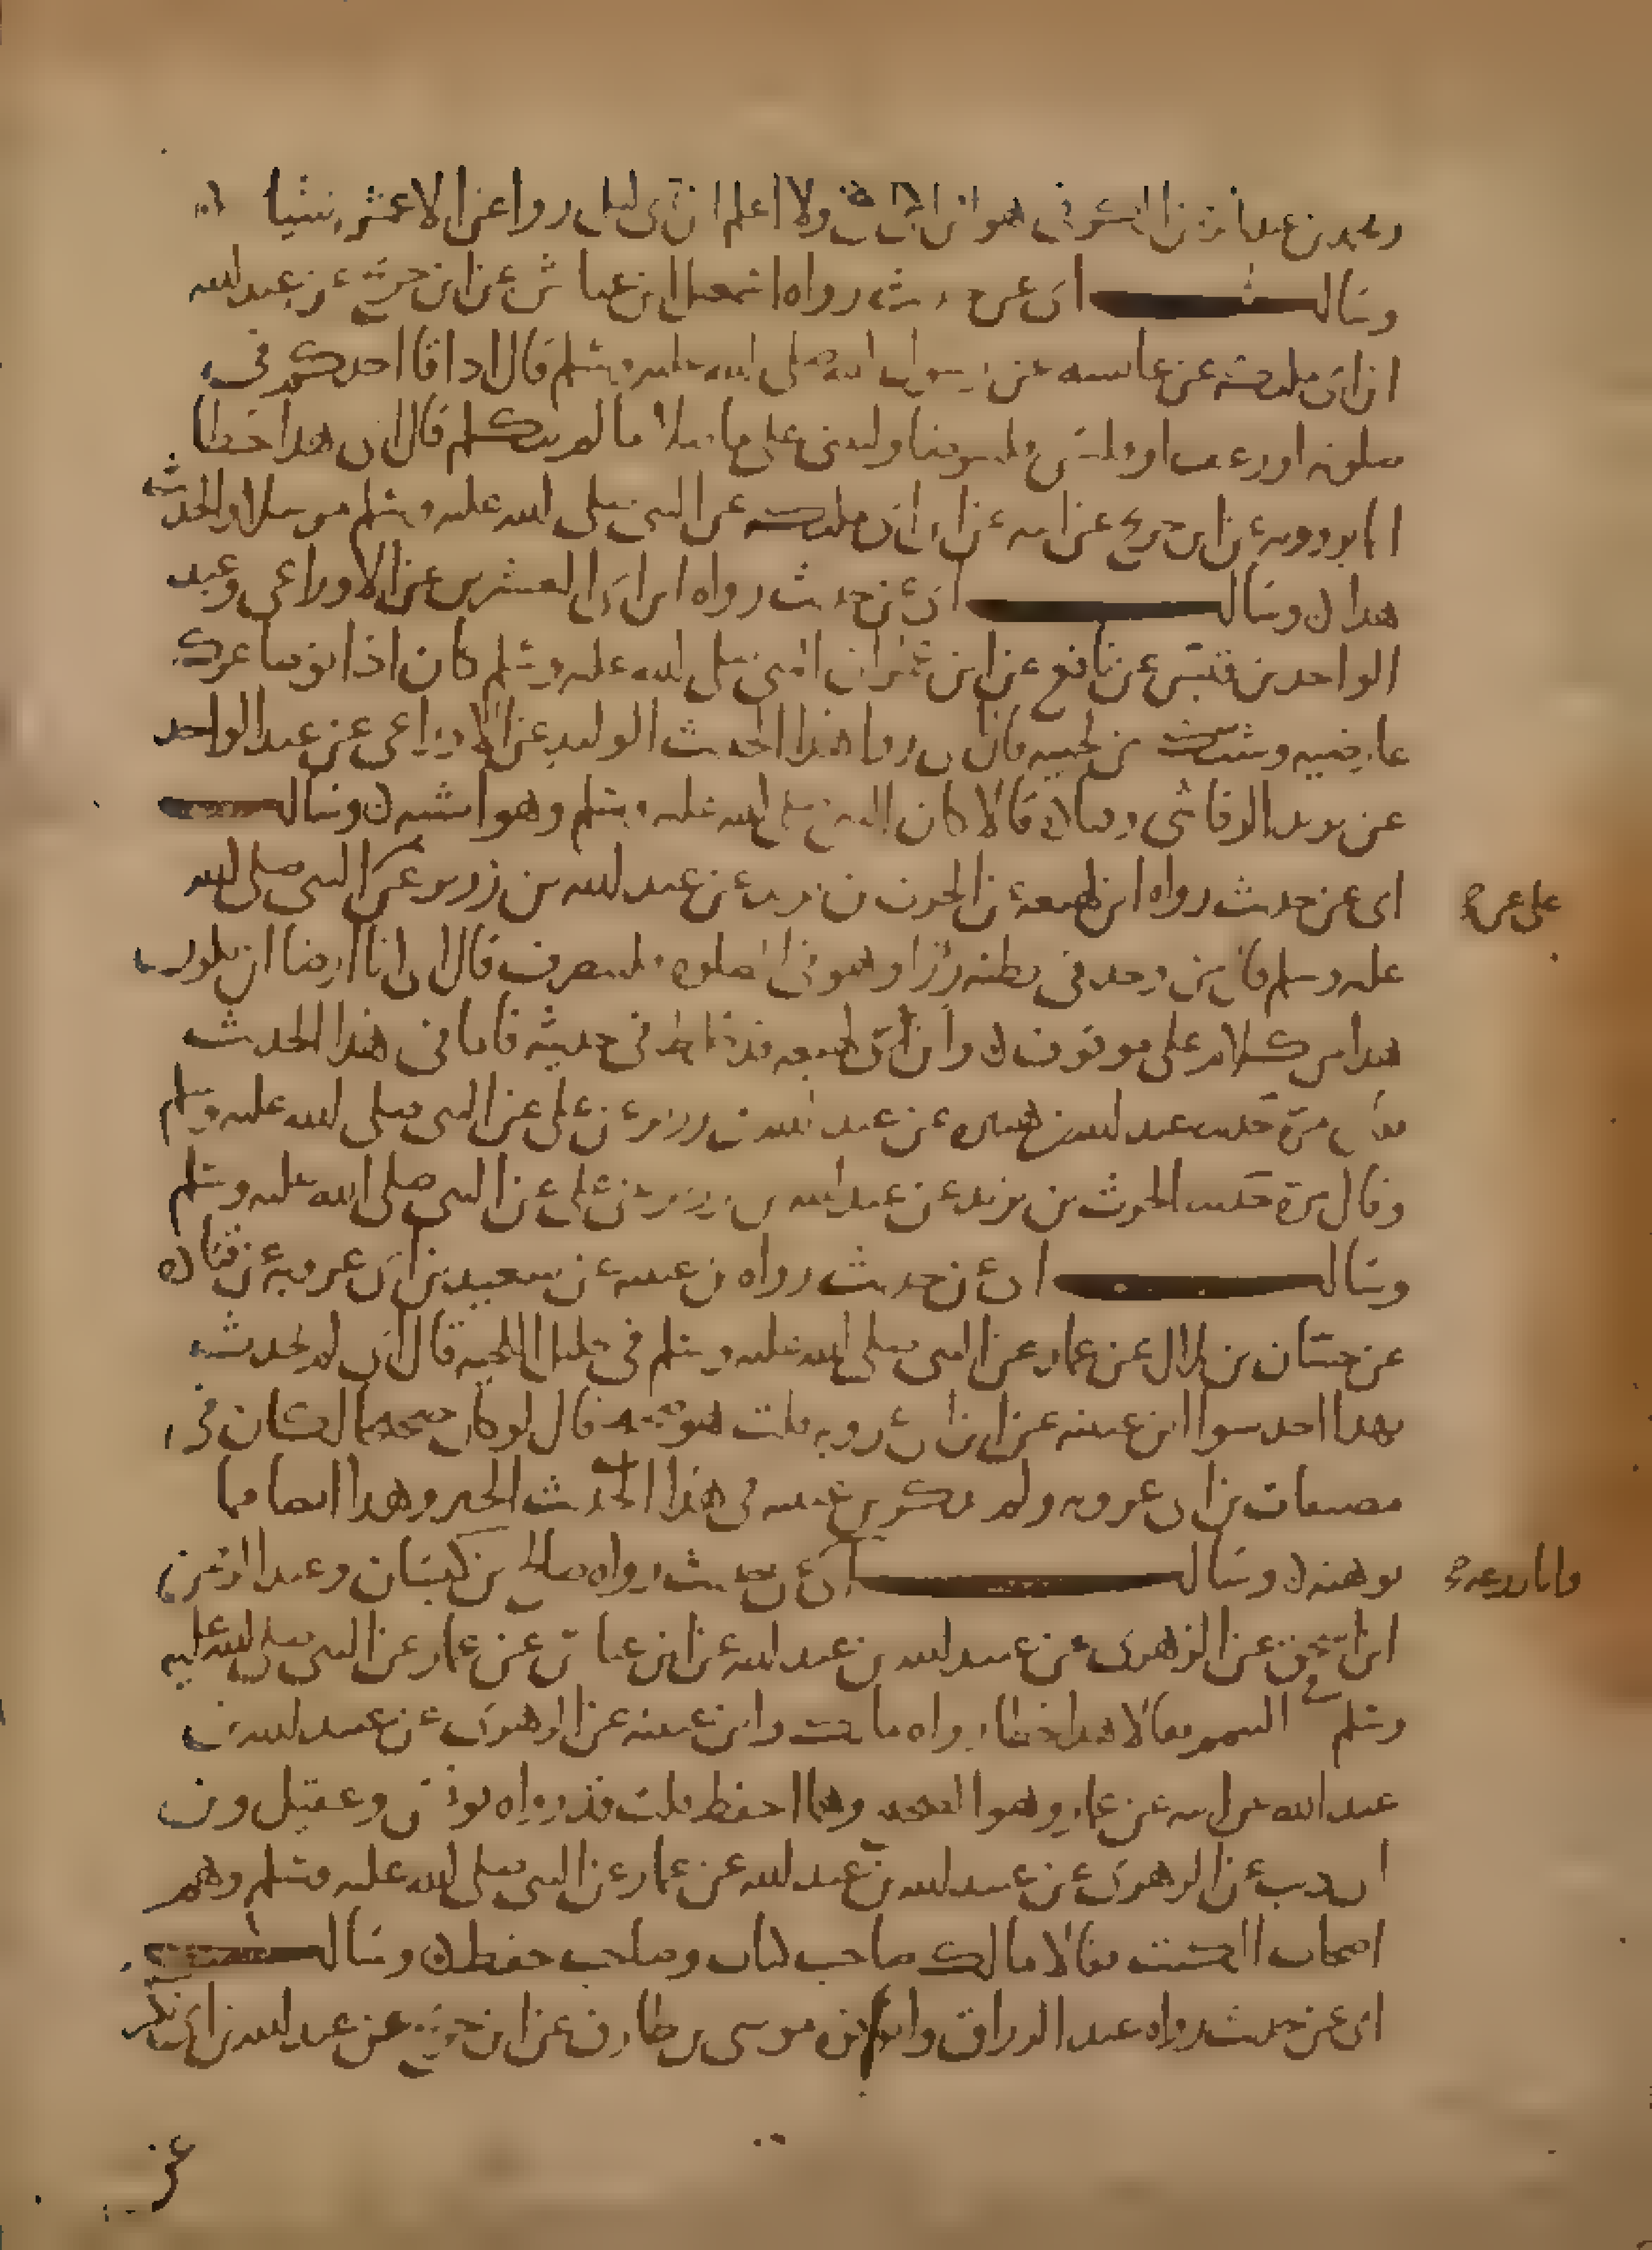 ولا اعلم ابن ابي ليلى روا عن الاعمش شيا
وسالت ابي عن حديث رواه اسمعيل ابن عياش عن ابن جريج عن عبد الله
ابن ابي مليكة عن عايشه عن رسول الله صلى الله عليه وسلم قال اذا قا احدكم في
صلوته او رعف او قلس فليتوضا وليبن على ما صلا ما لم يتكلم قال ابي هذا خطا
انما يروونه عن ابن جريج عن ابيه عن ابن ابي مليكة عن النبي صلى الله عليه وسلم مرسلا والحديث
هذا وسالت ابي عن حديث رواه ابن ابي العشرين عن الاوزاعي عن عبد
الواحد بن قيس عن نافع عن ابن عمر ان النبي صلى الله عليه وسلم كان اذا توضا عرك
عارضيه وشبك لحيته قال ابي روا هذا الحديث الوليد عن الاوزاعي عن عبد الواحد
عن يزيد الرقاشي وقتاده قالا كان النبي صلى الله عليه وسلم وهو اشبه وسالت
ابي عن حديث رواه ابن لهيعة عن الحرث بن يزيد عن عبد الله بن زرير عن النبي صلى الله
على عن
عليه وسلم قال من وجد في بطنه رزا وهو في الصلوه فلينصرف قال ابي انا ارضا ان يكون
هذا من كلام علي موقوف وان ابن لهيعه في حديثه قاما في هذا الحديث
مرة حديث عبد الله بن هبيره عن عبد الله بن زرير عن علي عن النبي صلى الله عليه وسلم
وقال مرة حديث الحرث بن يزيد عن عبد الله بن زرير عن علي عن النبي صلى الله عليه وسلم
وسالت ابي عن حديث رواه بن عيينه عن سعيد بن ابي عروبة عن قتاده
عن حسان بن بلال عن عمار عن النبي صلى الله عليه وسلم في تخليل اللحية قال ابي لم يحدث
بهذا احد سوا ابن عيينه عن ابن ابي عروبه قلت هو صحيح قال لو كان صحيحا لكان في
مصنفات بن ابي عروبه ولم يذكر بن عيينه في هذا الحديث الخبر وهذا ايضا مما
يوهنه وسالت ابي عن حديث رواه صالح بن كيسان وعبد الرحمن
وابا زرعه
ابن اسحق عن الزهري عن عبيد الله بن عبد الله عن ابن عباس عن عمار عن النبي صلى الله عليه
وسلم في التيمم فقالا هذا خطا رواه مالك وابن عيينه عن الزهري عن عبيد الله بن
عبد الله عن ابيه عن عمار وهو الصحيح وهما احفظ قلت قد رواه يونس وعقيل وبن
ابي ديب عن الزهري عن عبيد الله بن عبد الله عن عمار عن النبي صلى الله عليه وسلم وهم
اصحاب الكتب فقالا مالك صاحب كتاب وصاحب حفظ وسالت
ابي عن حديث رواه عبد الرزاق وابو قره موسى بن طارق عن ابن جريج عن عبد الله بن ابي بكر
عن